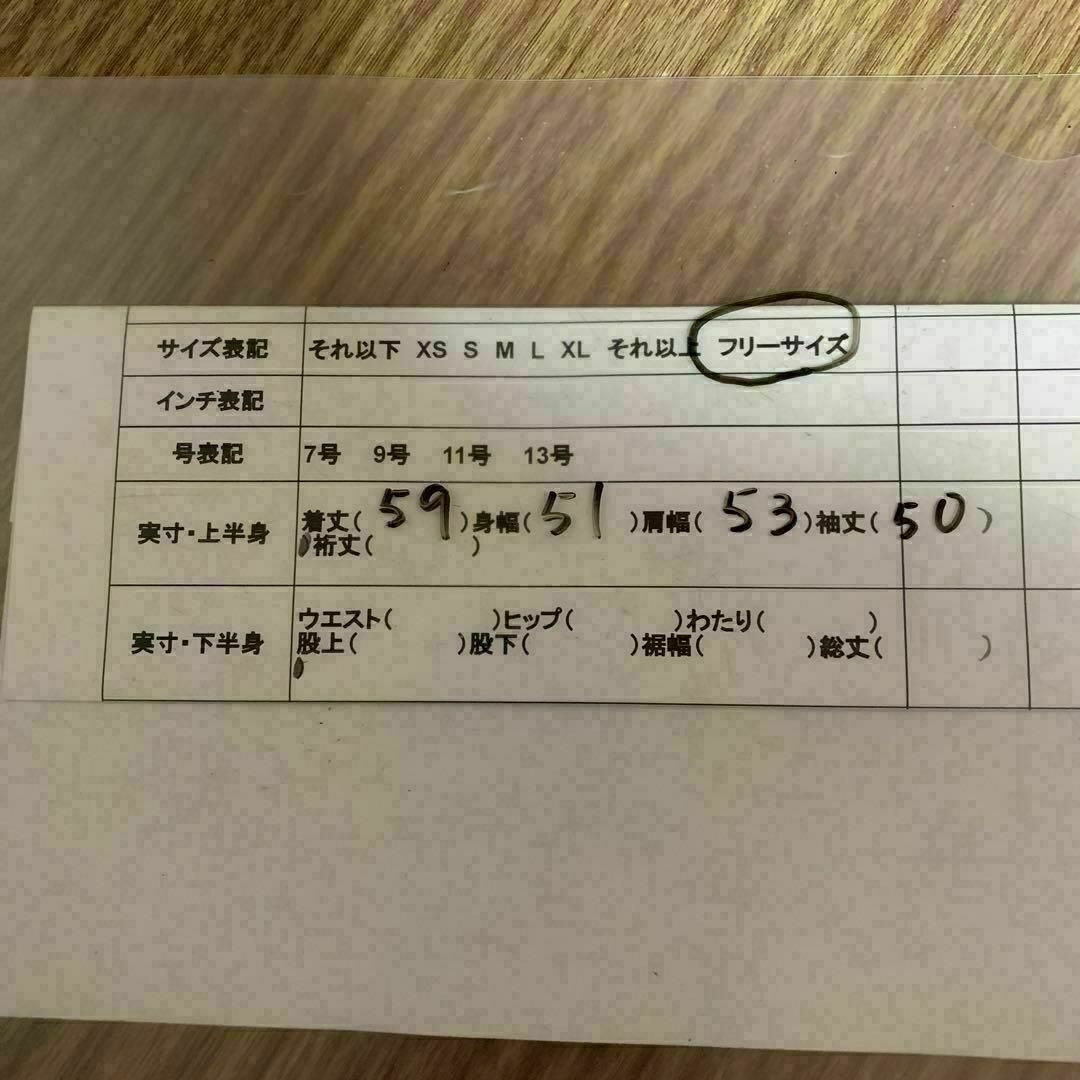 サイズ表記 それ以下 XS S M L XL それ以上 フリーサイズ
インチ表記
号表記 7号 9号 11号 13号
実寸・上半身 着丈( 59 )身幅( 51 )肩幅( 53 )袖丈( 50 )
裄丈( )
実寸・下半身 ウエスト( )ヒップ( )わたり( )
股上( )股下( )裾幅( )総丈( )